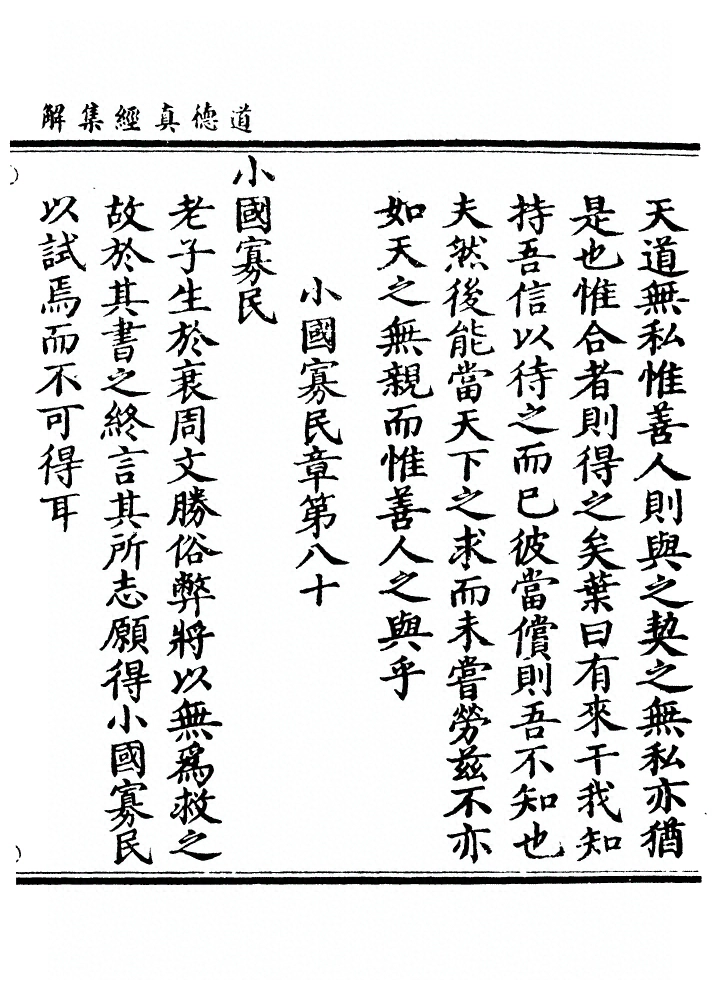 道德真經集解
天道無私惟善人則與之契之無私亦猶
是也惟合者則得之矣葉曰有來干我知
持吾信以待之而已彼當償則吾不知也
夫然後能當天下之求而未嘗勞玆不亦
如天之無親而惟善人之與乎
小國寡民章第八十
小國寡民
老子生於衰周文勝俗弊將以無爲救之
故於其書之終言其所志願得小國寡民
以試焉而不可得耳